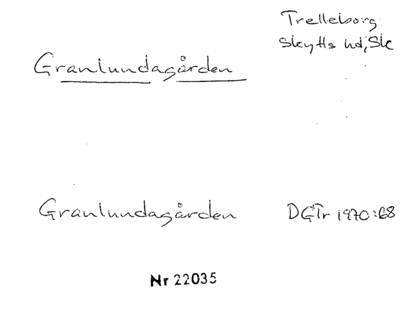 Trelleborg
Skytts hd, Sk
Granlundagården
Granlundagården DGTr 1970:68
Nr 22035